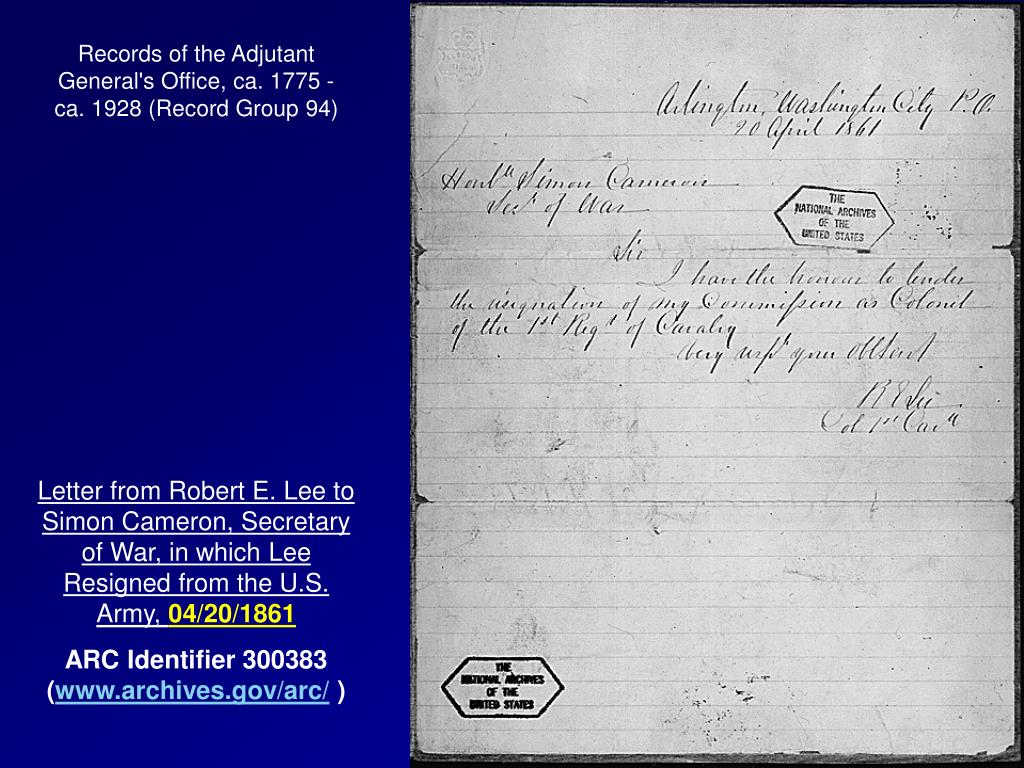 Records of the Adjutant
General's Office, ca. 1775 -
ca. 1928 (Record Group 94)
Letter from Robert E. Lee to
Simon Cameron, Secretary
of War, in which Lee
Resigned from the U.S.
Army, 04/20/1861
ARC Identifier 300383
(www.archives.gov/arc/ )
Arlington, Washington City P.O.
20 April 1861
Honble Simon Cameron
Secy of War
THE
NATIONAL ARCHIVES
OF THE
UNITED STATES
Sir
I have the honour to tender
the resignation of my Commission as Colonel
of the 1st Regt of Cavalry
Very respy your Obt Servt
R E Lee
Col 1st Cavy
THE
NATIONAL ARCHIVES
OF THE
UNITED STATES